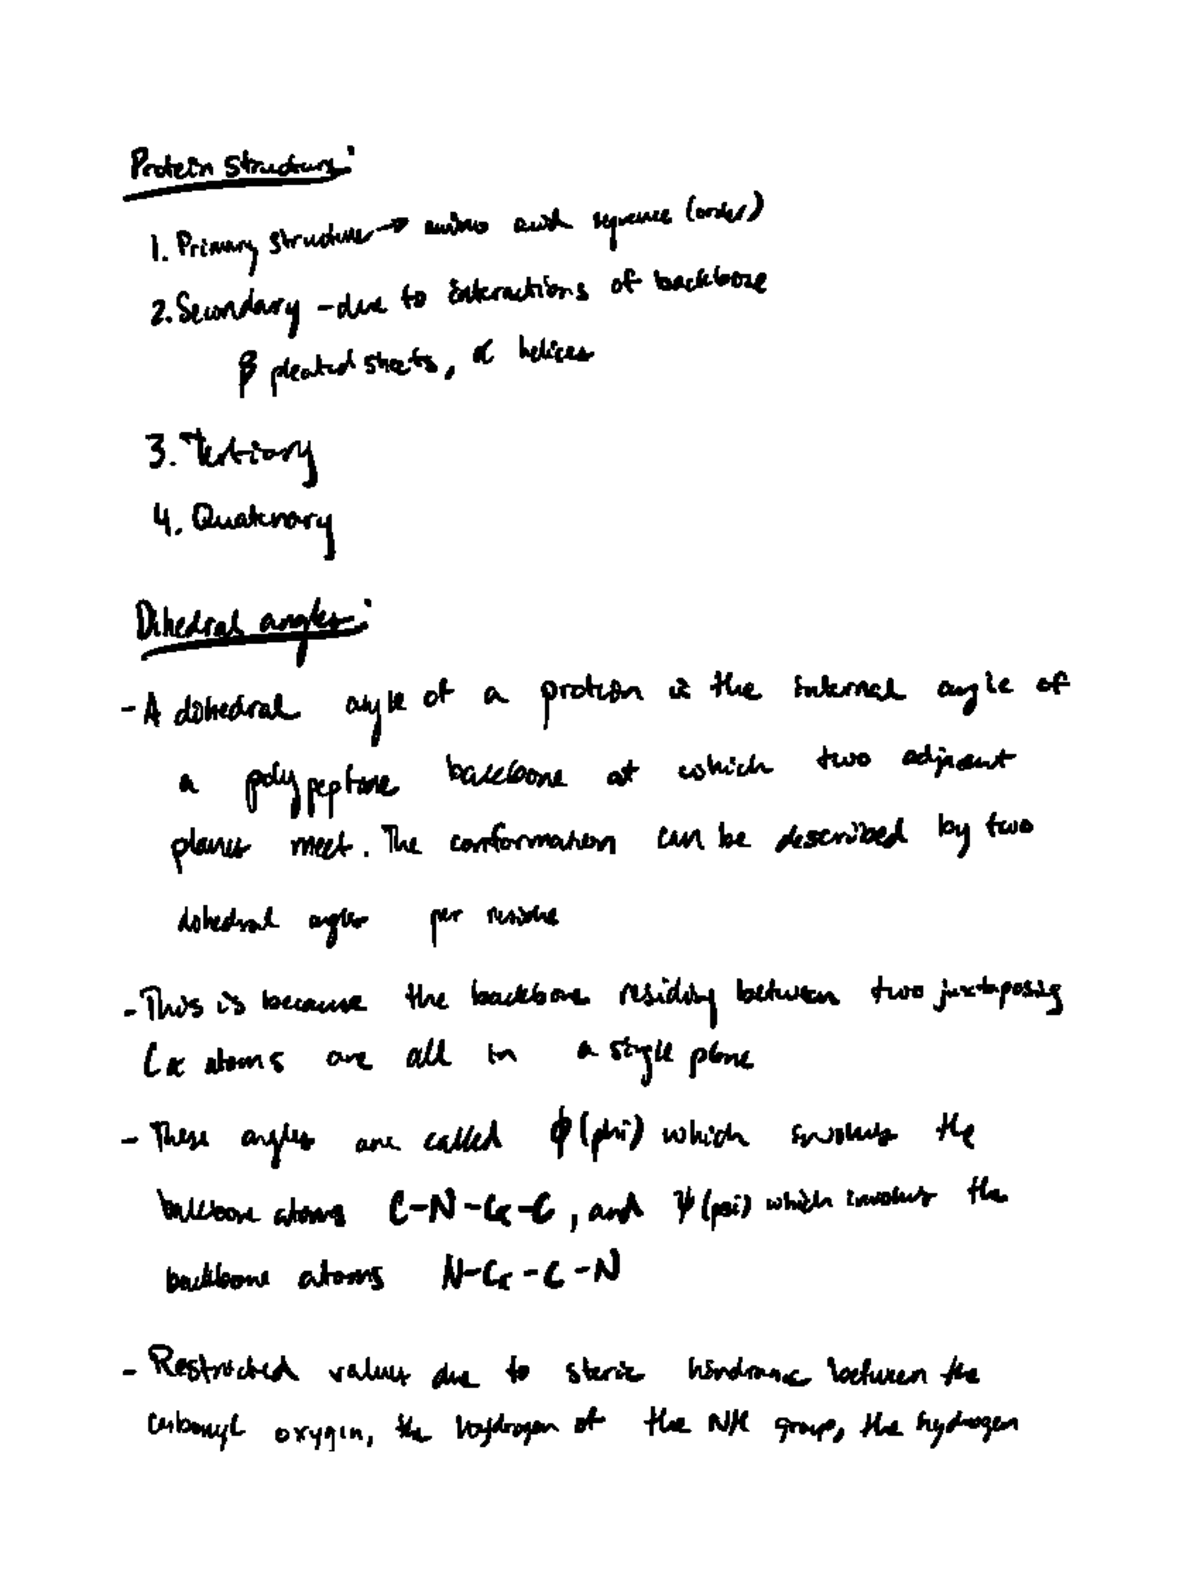 Protein Structure:
1. Primary structure → amino acid sequence (order)
2. Secondary - due to interactions of backbone
β pleated sheets, α helices
3. Tertiary
4. Quaternary
Dihedral angles:
- A dihedral angle of a protein is the internal angle of
a polypeptide backbone at which two adjacent
planes meet. The conformation can be described by two
dihedral angles per residue
- This is because the backbone residing between two juxtaposing
Cα atoms are all in a single plane
- These angles are called ϕ (phi) which involves the
backbone atoms C-N-Cα-C, and ψ (psi) which involves the
backbone atoms N-Cα-C-N
- Restricted values due to steric hindrance between the
carbonyl oxygen, the hydrogen of the NH group, the hydrogen